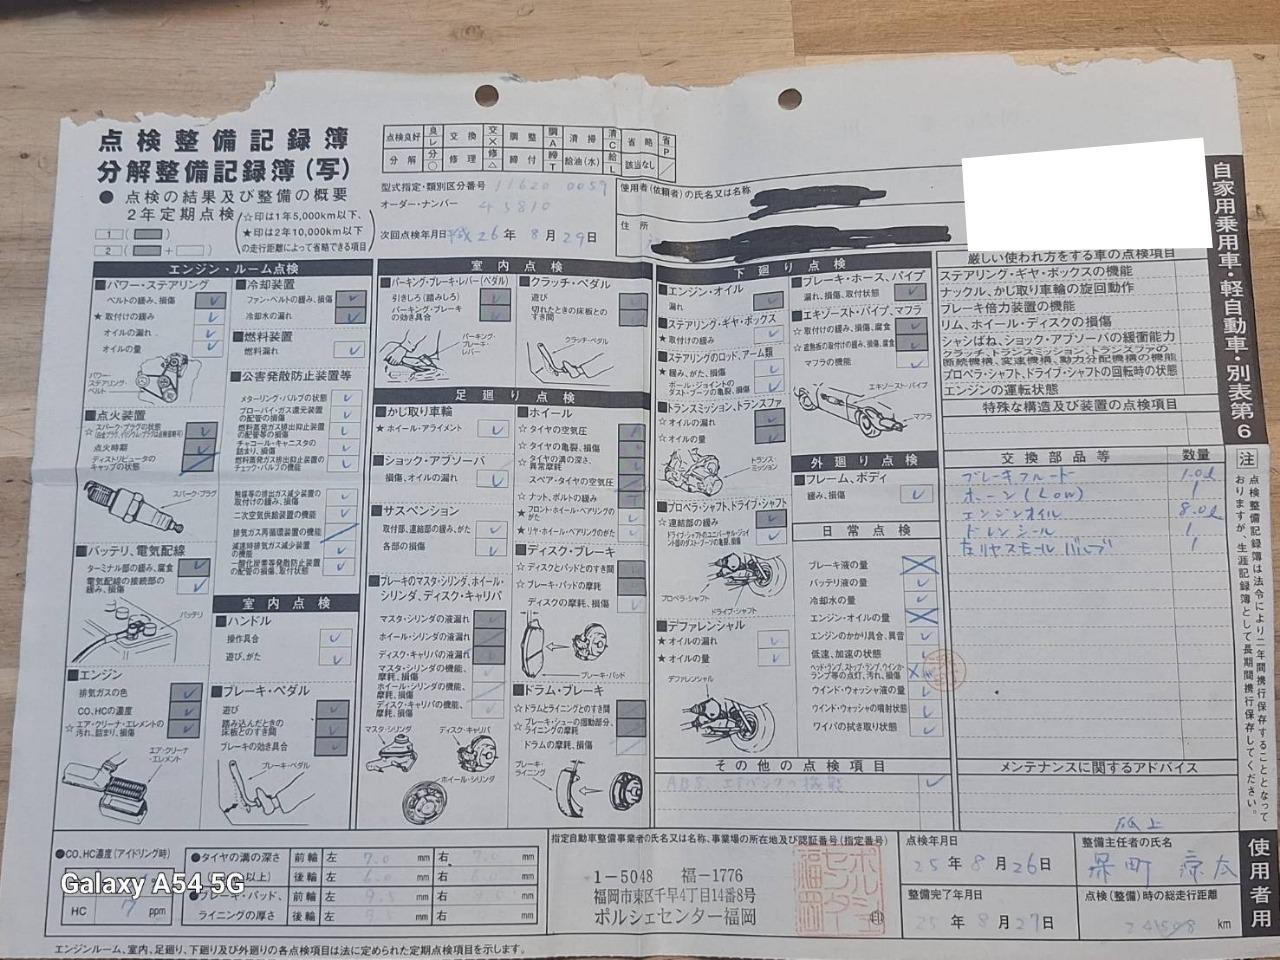 点検整備記録簿
分解整備記録簿(写)
● 点検の結果及び整備の概要
2年定期点検
☆印は1年5,000km以下、
★印は2年10,000km以下
の走行距離によって省略できる項目
1 ( )
2 ( + )
点検良好 レ 交換 × 調整 A 清掃 C 省略 P
分解 ○ 修理 △ 締付 T 給油(水) L 該当なし /
型式指定・類別区分番号 11620 0059
オーダー・ナンバー 45810
次回点検年月日 平成26年8月29日
使用者(依頼者)の氏名又は名称
住所
自家用乗用車・軽自動車・別表第6
エンジン・ルーム点検
■パワー・ステアリング
ベルトの緩み、損傷
★ 取付けの緩み
オイルの漏れ
オイルの量
パワー・ステアリング・ベルト
■点火装置
☆ スパーク・プラグの状態
点火時期
ディストリビュータのキャップの状態
スパーク・プラグ
■バッテリ、電気配線
ターミナル部の緩み、腐食
電気配線の接続部の緩み、損傷
バッテリ
■エンジン
排気ガスの色
CO、HCの濃度
☆ エア・クリーナ・エレメントの汚れ、詰まり、損傷
エア・クリーナ・エレメント
■冷却装置
ファン・ベルトの緩み、損傷
冷却水の漏れ
■燃料装置
燃料漏れ
■公害発散防止装置等
メターリング・バルブの状態
ブローバイ・ガス還元装置の配管の損傷
燃料蒸発ガス排出抑止装置の配管等の損傷
チャコール・キャニスタの詰まり、損傷
燃料蒸発ガス排出抑止装置のチェック・バルブの機能
触媒等の排出ガス減少装置の取付けの緩み、損傷
二次空気供給装置の機能
排気ガス再循環装置の機能
減速時排気ガス減少装置の機能
一酸化炭素等発散防止装置の配管の損傷、取付状態
室内点検
■ハンドル
操作具合
遊び、がた
■ブレーキ・ペダル
遊び
踏み込んだときの床板とのすき間
ブレーキの効き具合
ブレーキ・ペダル
室内点検
■パーキング・ブレーキ・レバー(ペダル)
引きしろ(踏みしろ)
パーキング・ブレーキの効き具合
パーキング・ブレーキ・レバー
■クラッチ・ペダル
遊び
切れたときの床板とのすき間
クラッチ・ペダル
足廻り点検
■かじ取り車輪
★ ホイール・アライメント
■ショック・アブソーバ
損傷、オイルの漏れ
■サスペンション
取付部、連結部の緩み、がた
各部の損傷
■ブレーキのマスタ・シリンダ、ホイール・シリンダ、ディスク・キャリパ
マスタ・シリンダの液漏れ
ホイール・シリンダの液漏れ
ディスク・キャリパの液漏れ
マスタ・シリンダの機能、摩耗、損傷
ホイール・シリンダの機能、摩耗、損傷
ディスク・キャリパの機能、摩耗、損傷
マスタ・シリンダ
ディスク・キャリパ
ホイール・シリンダ
■ホイール
☆ タイヤの空気圧
☆ タイヤの亀裂、損傷
☆ タイヤの溝の深さ、異常摩耗
スペア・タイヤの空気圧
☆ ナット、ボルトの緩み
★ フロント・ホイール・ベアリングのがた
★ リヤ・ホイール・ベアリングのがた
■ディスク・ブレーキ
☆ ディスクとパッドとのすき間
☆ ブレーキ・パッドの摩耗
ディスクの摩耗、損傷
ブレーキ・パッド
■ドラム・ブレーキ
☆ ドラムとライニングとのすき間
☆ ブレーキ・シューの摺動部分、ライニングの摩耗
ドラムの摩耗、損傷
ブレーキ・ライニング
下廻り点検
■エンジン・オイル
漏れ
■ステアリング・ギヤ・ボックス
★ 取付けの緩み
■ステアリングのロッド、アーム類
★ 緩み、がた、損傷
ボール・ジョイントのダスト・ブーツの亀裂、損傷
■トランスミッション、トランスファ
☆ オイルの漏れ
☆ オイルの量
トランスミッション
■プロペラ・シャフト、ドライブ・シャフト
☆ 連結部の緩み
ドライブ・シャフトのユニバーサル・ジョイント部のダスト・ブーツの亀裂、損傷
プロペラ・シャフト
ドライブ・シャフト
■デファレンシャル
★ オイルの漏れ
★ オイルの量
デファレンシャル
■ブレーキ・ホース、パイプ
漏れ、損傷、取付状態
■エキゾースト・パイプ、マフラ
☆ 取付けの緩み、損傷、腐食
☆ 遮熱板の取付けの緩み、損傷、腐食
マフラの機能
エキゾースト・パイプ
マフラ
外廻り点検
■フレーム、ボディ
緩み、損傷
日常点検
ブレーキ液の量
バッテリ液の量
冷却水の量
エンジン・オイルの量
エンジンのかかり具合、異音
低速、加速の状態
ヘッド・ランプ、ストップ・ランプ、ウインカ・ランプ等の点灯、汚れ、損傷
ウインド・ウォッシャ液の量
ウインド・ウォッシャの噴射状態
ワイパの拭き取り状態
その他の点検項目
ABS、エアバックの機能
厳しい使われ方をする車の点検項目
ステアリング・ギヤ・ボックスの機能
ナックル、かじ取り車輪の旋回動作
ブレーキ倍力装置の機能
リム、ホイール・ディスクの損傷
シャシばね、ショック・アブソーバの緩衝能力
クラッチ、トランスミッション、トランスファの断続機構、変速機構、動力分配機構の機能
プロペラ・シャフト、ドライブ・シャフトの回転時の状態
エンジンの運転状態
特殊な構造及び装置の点検項目
交換部品等 数量
ブレーキフルード 1.0ℓ
ホーン(Low) 1
エンジンオイル 8.0ℓ
ドレンシール 1
左リヤスモールバルブ 1
メンテナンスに関するアドバイス
以上
注 点検整備記録簿は法令により二年間携行することとなっておりますが、生涯記録簿として長期間携行保存してください。
使用者用
●CO、HC濃度(アイドリング時)
HC 7 ppm
●タイヤの溝の深さ 前輪 左 7.0 mm 右 7.0 mm
後輪 左 6.0 mm 右 mm
●ブレーキ・パッド、ライニングの厚さ 前輪 左 9.5 mm 右 mm
後輪 左 9.5 mm 右 mm
Galaxy A54 5G
指定自動車整備事業者の氏名又は名称、事業場の所在地及び認証番号(指定番号)
1-5048 福-1776
福岡市東区千早4丁目14番8号
ポルシェセンター福岡
ポルシェセンター福岡
点検年月日
25年8月26日
整備完了年月日
25年8月27日
整備主任者の氏名
点検(整備)時の総走行距離
km
エンジンルーム、室内、足廻り、下廻り及び外廻りの各点検項目は法に定められた定期点検項目を示します。